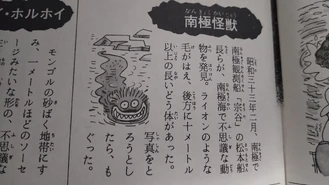 南極怪獣
なんきょくかいじゅう
昭和三十三年二月、南極で
南極観測船「宗谷」の松本船
長らが、南極海で不思議な動
物を発見。ライオンのような
毛がはえ、後方に十メートル
以上の長いどう体があった。
写真をと
ろうとし
たら、も
ぐった。
・ホルホイ
モンゴルの砂ばく地帯にす
み、一メートルほどのソーセ
ージみたいな形の、不思議な